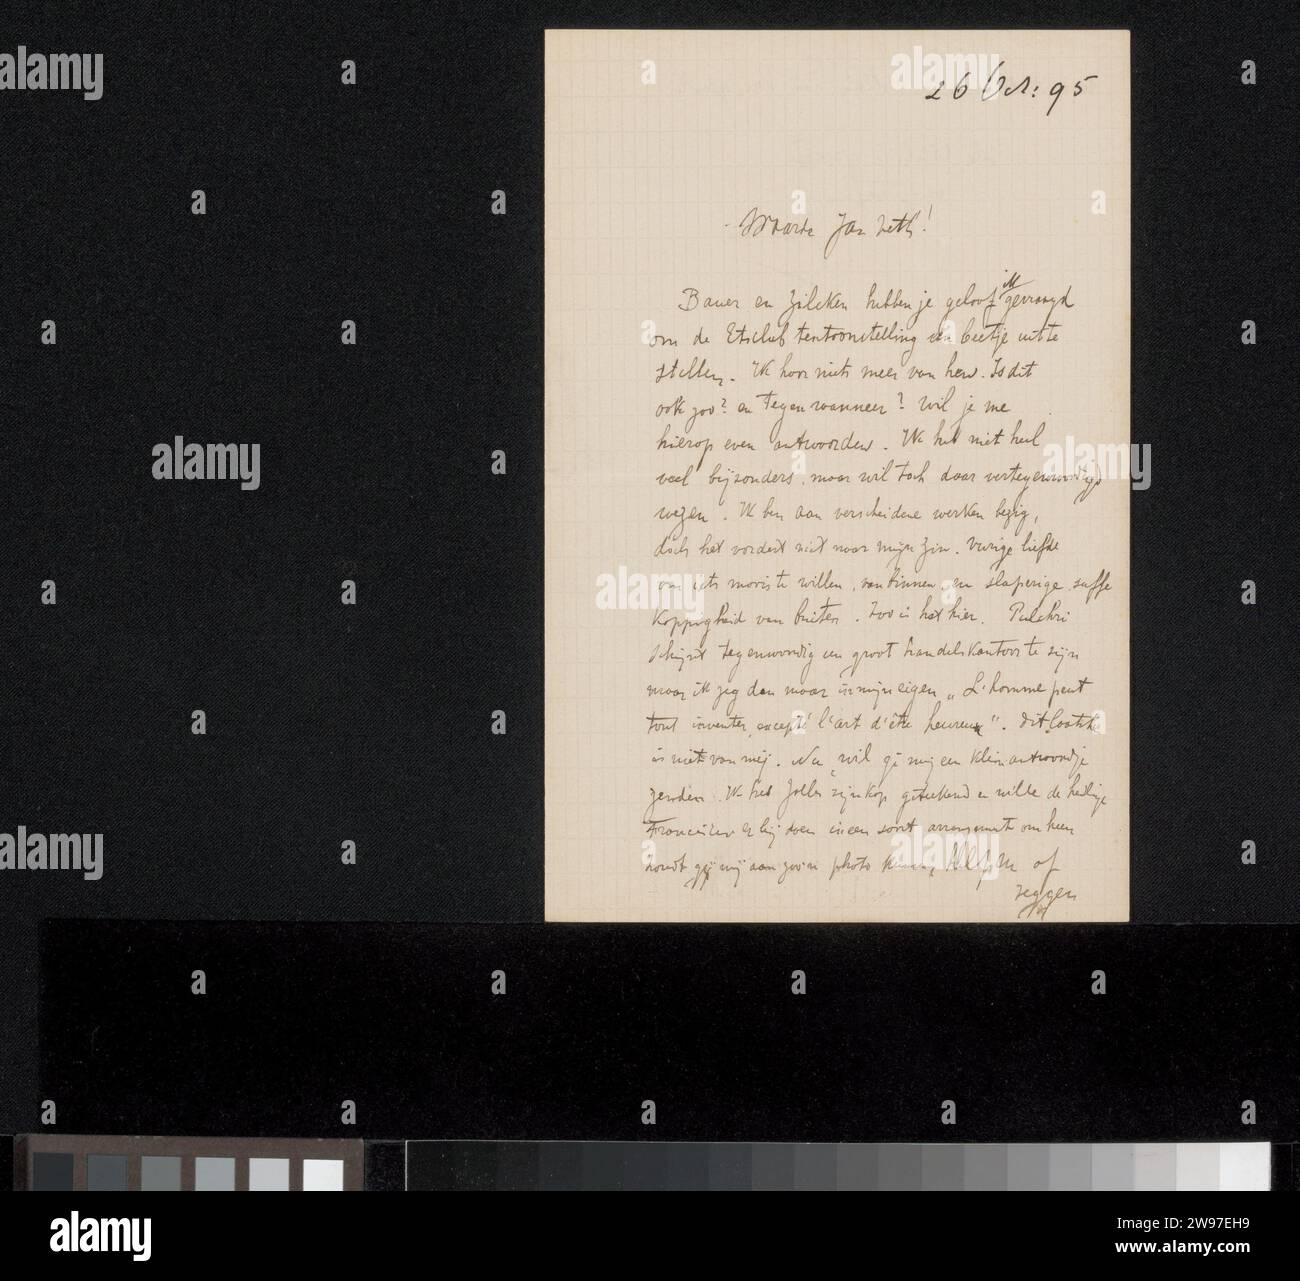 26 Oct: 95
Waarde Jan Veth!
ik
Bauer en Zilcken hebben je geloof gevraagd
om de Etsclub tentoonstelling een beetje uit te
stellen. Ik hoor niets meer van hen. Is dit
ook zoo? en tegen wanneer? wil je me
hierop even antwoorden. Ik heb niet heel
veel bijzonders, maar wil toch daar vertegenwoordigd
wezen. Ik ben aan verscheidene werken bezig,
doch het vordert niet naar mijn zin. Vurige liefde
van iets moois te willen, van binnen, en slaperige, suffe
koppigheid van buiten. Zoo is het hier. Pulchri
schijnt tegenwoordig een groot handelskantoor te zijn
maar ik zeg dan maar in mijn eigen „L'homme peut
tout inventer, excepté l'art d'être heureux". dit laatste
is niet van mij. Nu, wil gij mij een klein antwoordje
zenden. Ik heb zijn kop geteekend en wilde de heilige
Franciscus er bij doen in een soort arrangement om heen
houdt gij mij aan zoo'n photo helpen of
zeggen
alamy
Image ID: 2W97EH9
www.alamy.com